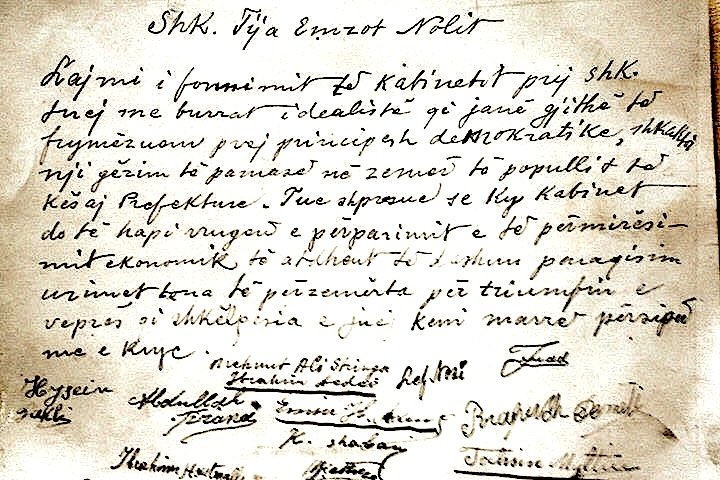 Shk. Tija Emzot Nolit
Lajmi i formimit të Kabinetit prej shk.
suej me burrat idealistë që janë gjithë të
frymëzuem prej principesh demokratike, shkaktoi
nji gëzim të pamasë në zemër të popullit të
kësaj Prefekture. Tue shpresue se ky Kabinet
do të hapi rrugen e përparimit e të përmirësi-
mit ekonomik të atdheut të dashun paraqisim
urimet tona të përzemërta për triumfin e
veprës si shkëlqesia e juej keni marrë përsipër
me e krye
Mehmet Ali Stringa
Ibrahim Dedej
Fuad
Hysein
Abdullah
K. Shabani
Ibrahim